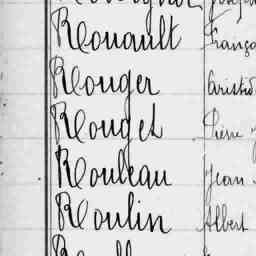 Rouault Franço
Rouger Aristid
Rouget Pierre
Rouleau Jean
Roulin Albert